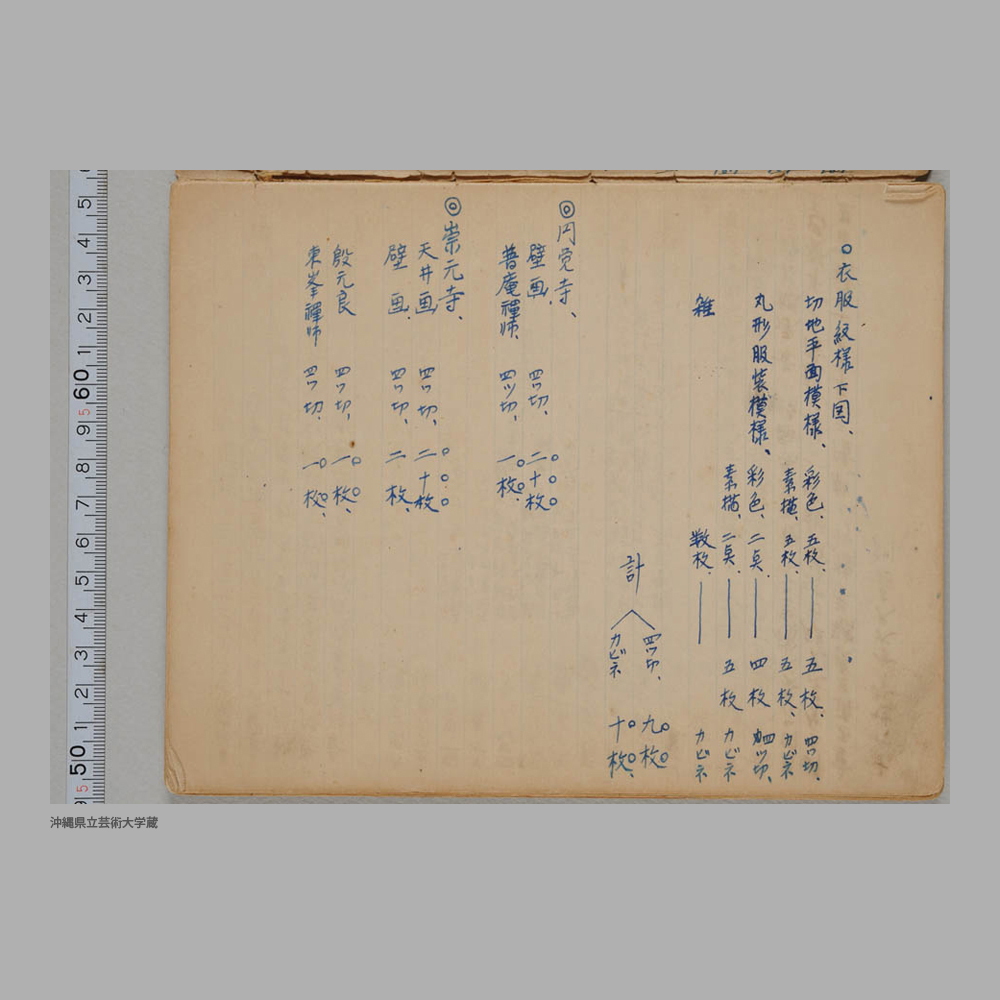 ○衣服紋様下図、
切地平面模様、彩色、五枚、――五枚、四ツ切、
素描、五枚、――五枚、カビネ
丸形服装模様、彩色、二点、――四枚、四ツ切、
素描、二点、――五枚カビネ
雑　数枚、――カビネ
計
四ツ切、九枚
カビネ十枚、
◎円覚寺、
壁画、四ツ切、二十枚
普庵禪师、四ツ切、一枚、
◎崇元寺、
天井画四ツ切、二十枚
壁画、四ツ切二枚、
殷元良四ツ切、一枚、
東峯禪师四ツ切、一枚、
沖縄県立芸術大学蔵
5 4 3 2 1 60 9 8 7 6 5 4 3 2 1 50 9